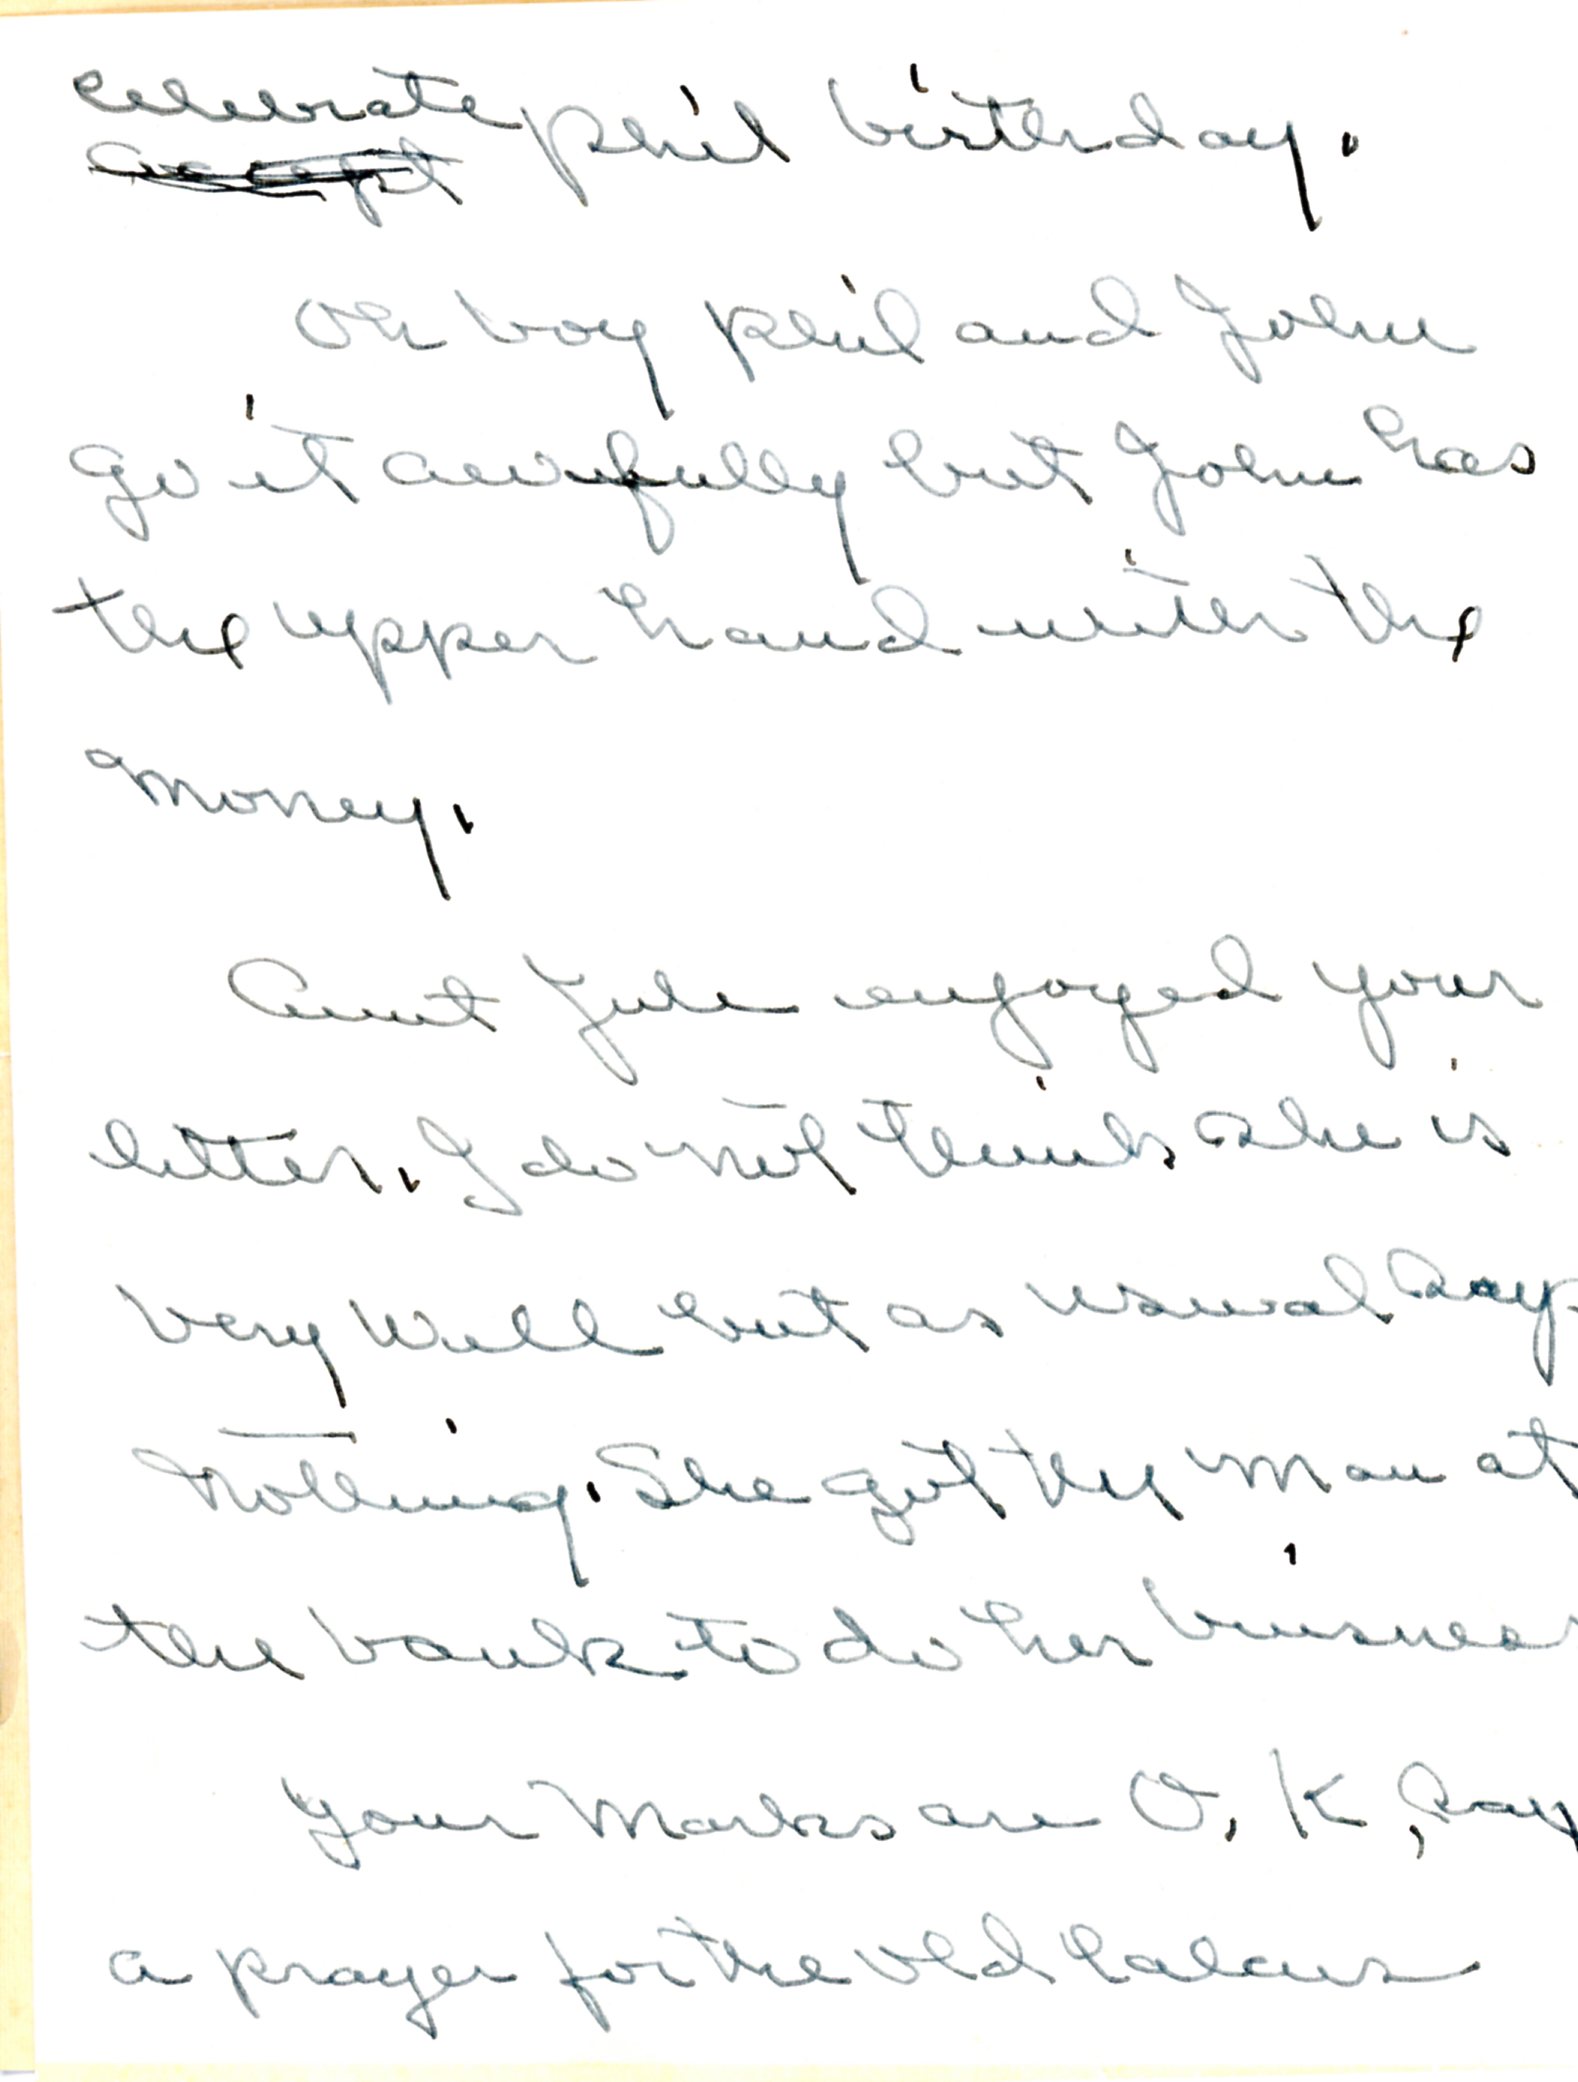 celebrate
accept phil birthday.
Oh boy phil and John
go it awfully but John has
the upper hand with the
money.
Aunt Jule enjoyed your
letter. I do not think she is
very well but as usual says
nothing. She got the man at
the bank to do her buisness
your marks are O, K, say
a prayer for the old